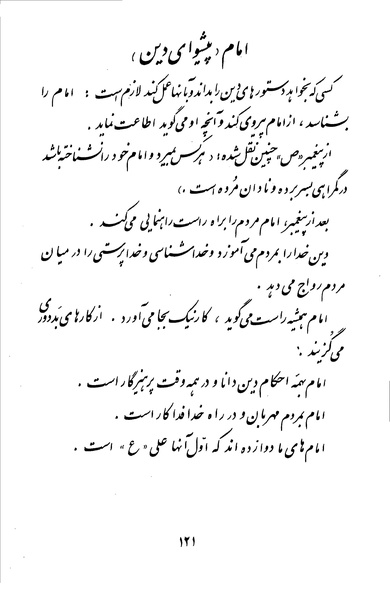 امام ( پیشوای دین )
کسی که بخواهد دستورهای دین را بداند و بآنها عمل کند لازم است : امام را
بشناسد ، از امام پیروی کند و آنچه او می گوید اطاعت نماید .
از پیغمبر «ص» چنین نقل شده : ( هر کس بمیرد و امام خود را نشناخته باشد
در گمراهی بسر برده و نادان مُرده است . )
بعد از پیغمبر، امام مردم را براه راست راهنمایی می کند .
دین خدا را بمردم می آموزد و خداشناسی و خداپرستی را در میان
مردم رواج می دهد .
امام همیشه راست می گوید ، کار نیک بجا می آورد . از کارهای بَد دوری
می گزیند .
امام بهمهٔ احکام دین دانا و در همه وقت پرهیزگار است .
امام بمردم مهربان و در راه خدا فداکار است .
امام های ما دوازده اند که اوّل آنها علی «ع» است .
۱۲۱